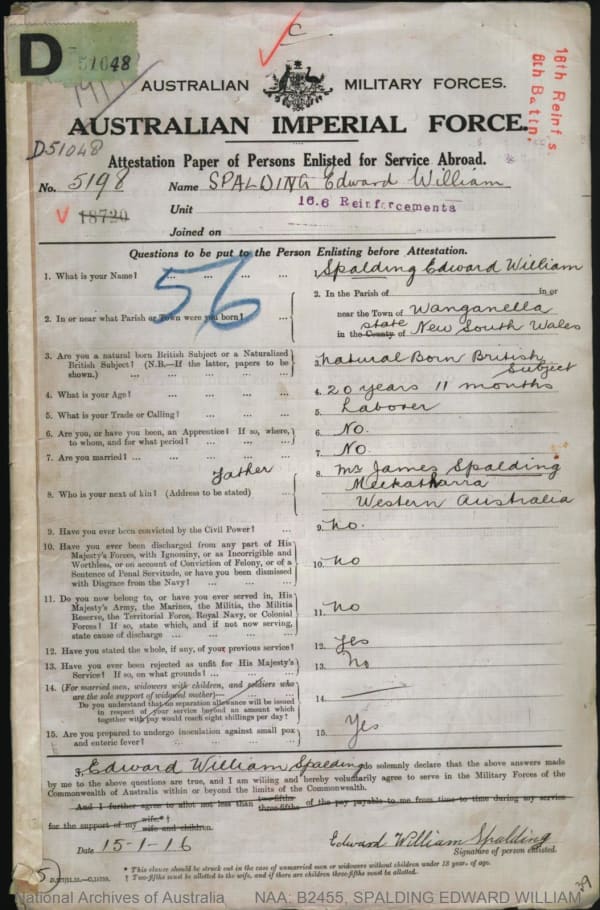 C
D 51048
191
AUSTRALIAN MILITARY FORCES.
AUSTRALIAN IMPERIAL FORCE.
16th Reinf.s
8th Battn.
D51048
Attestation Paper of Persons Enlisted for Service Abroad.
No. 5198 Name SPALDING Edward William
18720 Unit 16.6 Reinforcements
Joined on
Questions to be put to the Person Enlisting before Attestation.
56
1. What is your Name? ... ... ... ... 1. Spalding Edward William
2. In or near what Parish or Town were you born? ... 2. In the Parish of in or
near the Town of Wanganella
in the County state of New South Wales
3. Are you a natural born British Subject or a Naturalized 3. Natural Born British
British Subject? (N.B.—If the latter, papers to be Subject
shown.) ... ... ... ... ...
4. What is your Age? ... ... ... ... 4. 20 years 11 months
5. What is your Trade or Calling? ... ... ... 5. Laborer
6. Are you, or have you been, an Apprentice? If so, where, 6. No.
to whom, and for what period? ... ... ...
7. Are you married? ... ... ... ... ... 7. No
Father
8. Who is your next of kin? (Address to be stated) ... 8. Mr James Spalding
Meekatharra
Western Australia
9. Have you ever been convicted by the Civil Power? ... 9. No.
10. Have you ever been discharged from any part of His 10. No
Majesty's Forces, with Ignominy, or as Incorrigible and
Worthless, or on account of Conviction of Felony, or of a
Sentence of Penal Servitude, or have you been dismissed
with Disgrace from the Navy? ... ... ...
11. Do you now belong to, or have you ever served in, His 11. No
Majesty's Army, the Marines, the Militia, the Militia
Reserve, the Territorial Force, Royal Navy, or Colonial
Forces? If so, state which, and if not now serving,
state cause of discharge ... ... ... ...
12. Have you stated the whole, if any, of your previous service? 12. Yes
13. Have you ever been rejected as unfit for His Majesty's 13. No
Service? If so, on what grounds? ... ... ...
14. (For married men, widowers with children, and soldiers who 14.
are the sole support of widowed mother)—
Do you understand that no separation allowance will be issued
in respect of your service beyond an amount which
together with pay would reach eight shillings per day?
15. Are you prepared to undergo inoculation against small pox 15. Yes
and enteric fever? ... ... ... ...
I, Edward William Spalding do solemnly declare that the above answers made
by me to the above questions are true, and I am willing and hereby voluntarily agree to serve in the Military Forces of the
Commonwealth of Australia within or beyond the limits of the Commonwealth.
And I further agree to allot not less than two-fifths three-fifths of the pay payable to me from time to time during my service
for the support of my wife.* † wife and children.
Date 15-1-16 Edward William Spalding
Signature of person enlisted.
* This clause should be struck out in the case of unmarried men or widowers without children under 18 year. of age.
† Two-fifths must be allotted to the wife, and if there are children three-fifths must be allotted.
5
39
National Archives of Australia NAA: B2455, SPALDING EDWARD WILLIAM